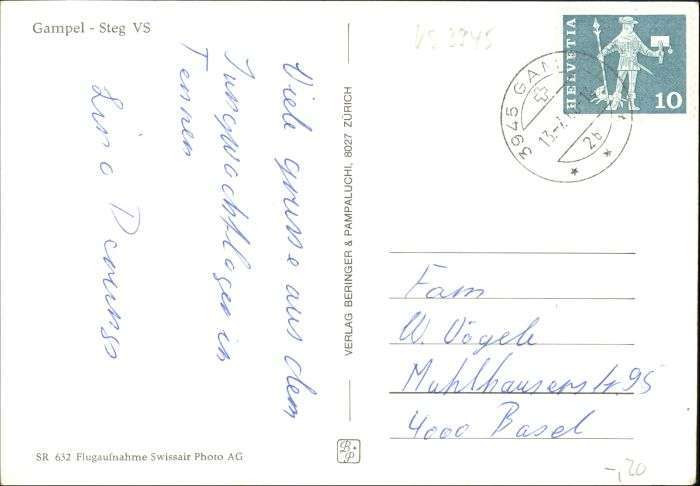 Gampel - Steg VS
VS 3945
HELVETIA
10
3945 GAM
13.-7.
2b
Viele grusse aus dem
Jungwachtlager in
Tennen
Lino
VERLAG BERINGER & PAMPALUCHI, 8027 ZÜRICH
Fam
W. Vögele
Mühlhauserstr 95
4000 Basel
SR 632 Flugaufnahme Swissair Photo AG
B.P
-,20